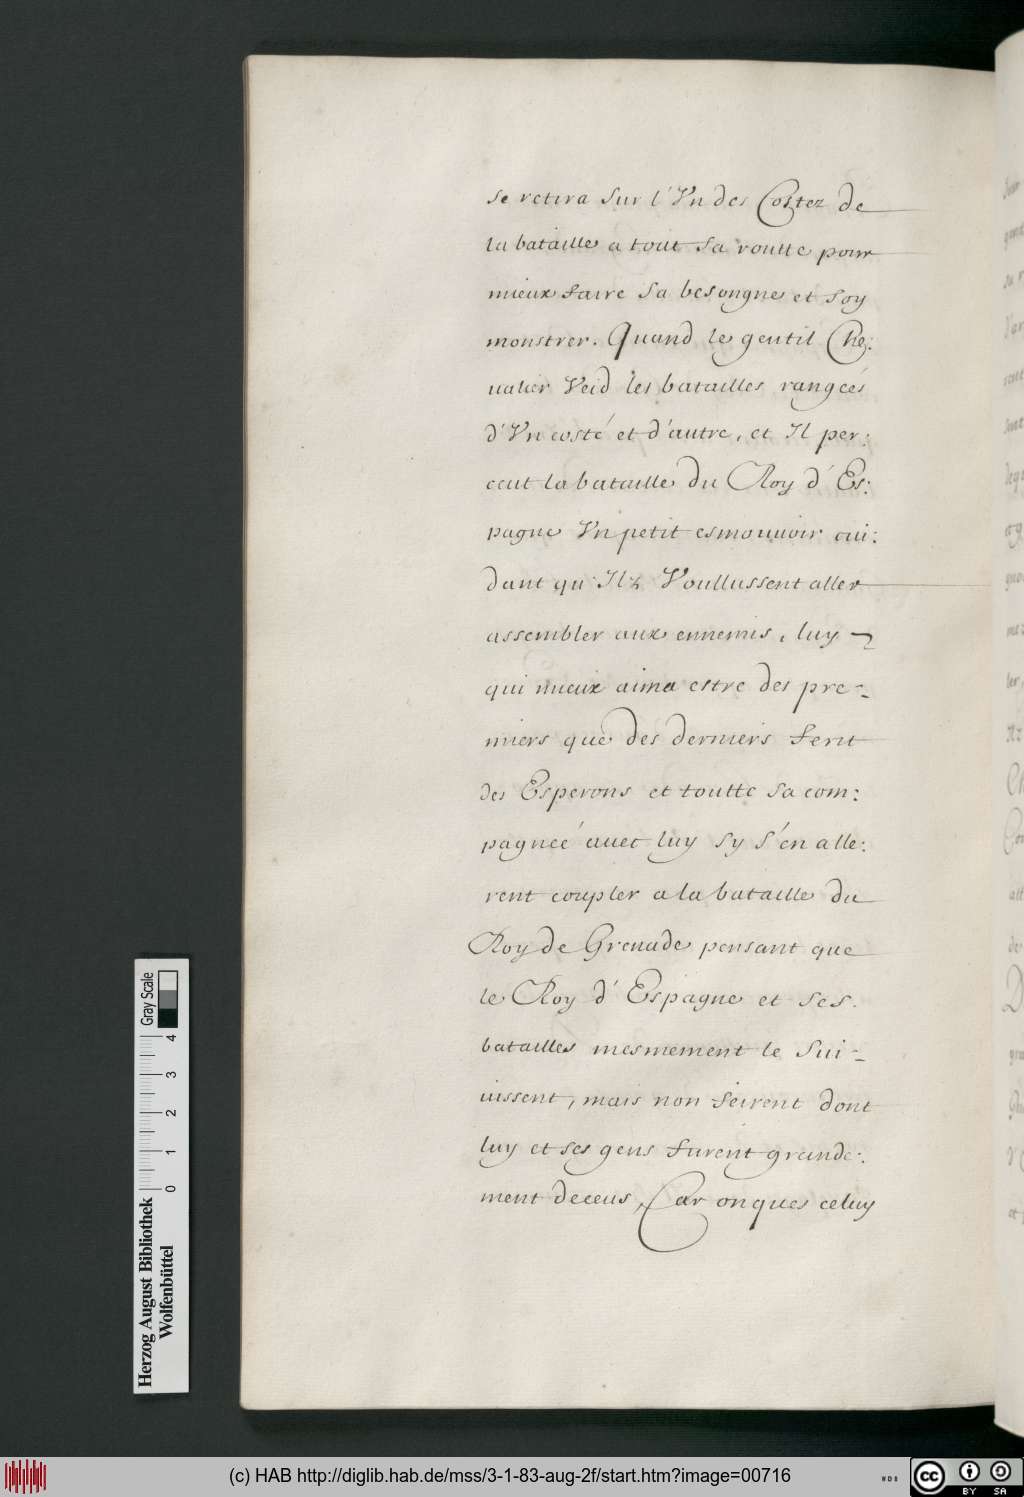 se retira sur l'Vn des Costez de
la bataille a tout sa routte pour
mieux faire sa besongne et soy
monstrer. Quand le gentil Che:
ualier Veid les batailles rangeés
d'Vn costé et d'autre, et Il per:
ceut la bataille du Roy d'Es:
pagne Vn petit esmouuoir cui:
dant qu'Ilz Voullussent aller
assembler aux ennemis, luy
qui mieux aima estre des pre-
miers que des derniers ferit
des Esperons et toutte sa com:
pagneé auec luy sy s'en alle:
rent coupler a la bataille du
Roy de Grenade pensant que
le Roy d'Espagne et ses
batailles mesmement le sui-
uissent, mais non feirent dont
luy et ses gens furent grande:
ment deceus, Car onques celuy
Gray Scale
0 1 2 3 4
Herzog August Bibliothek
Wolfenbüttel
(c) HAB http://diglib.hab.de/mss/3-1-83-aug-2f/start.htm?image=00716
WDB
cc
BY SA